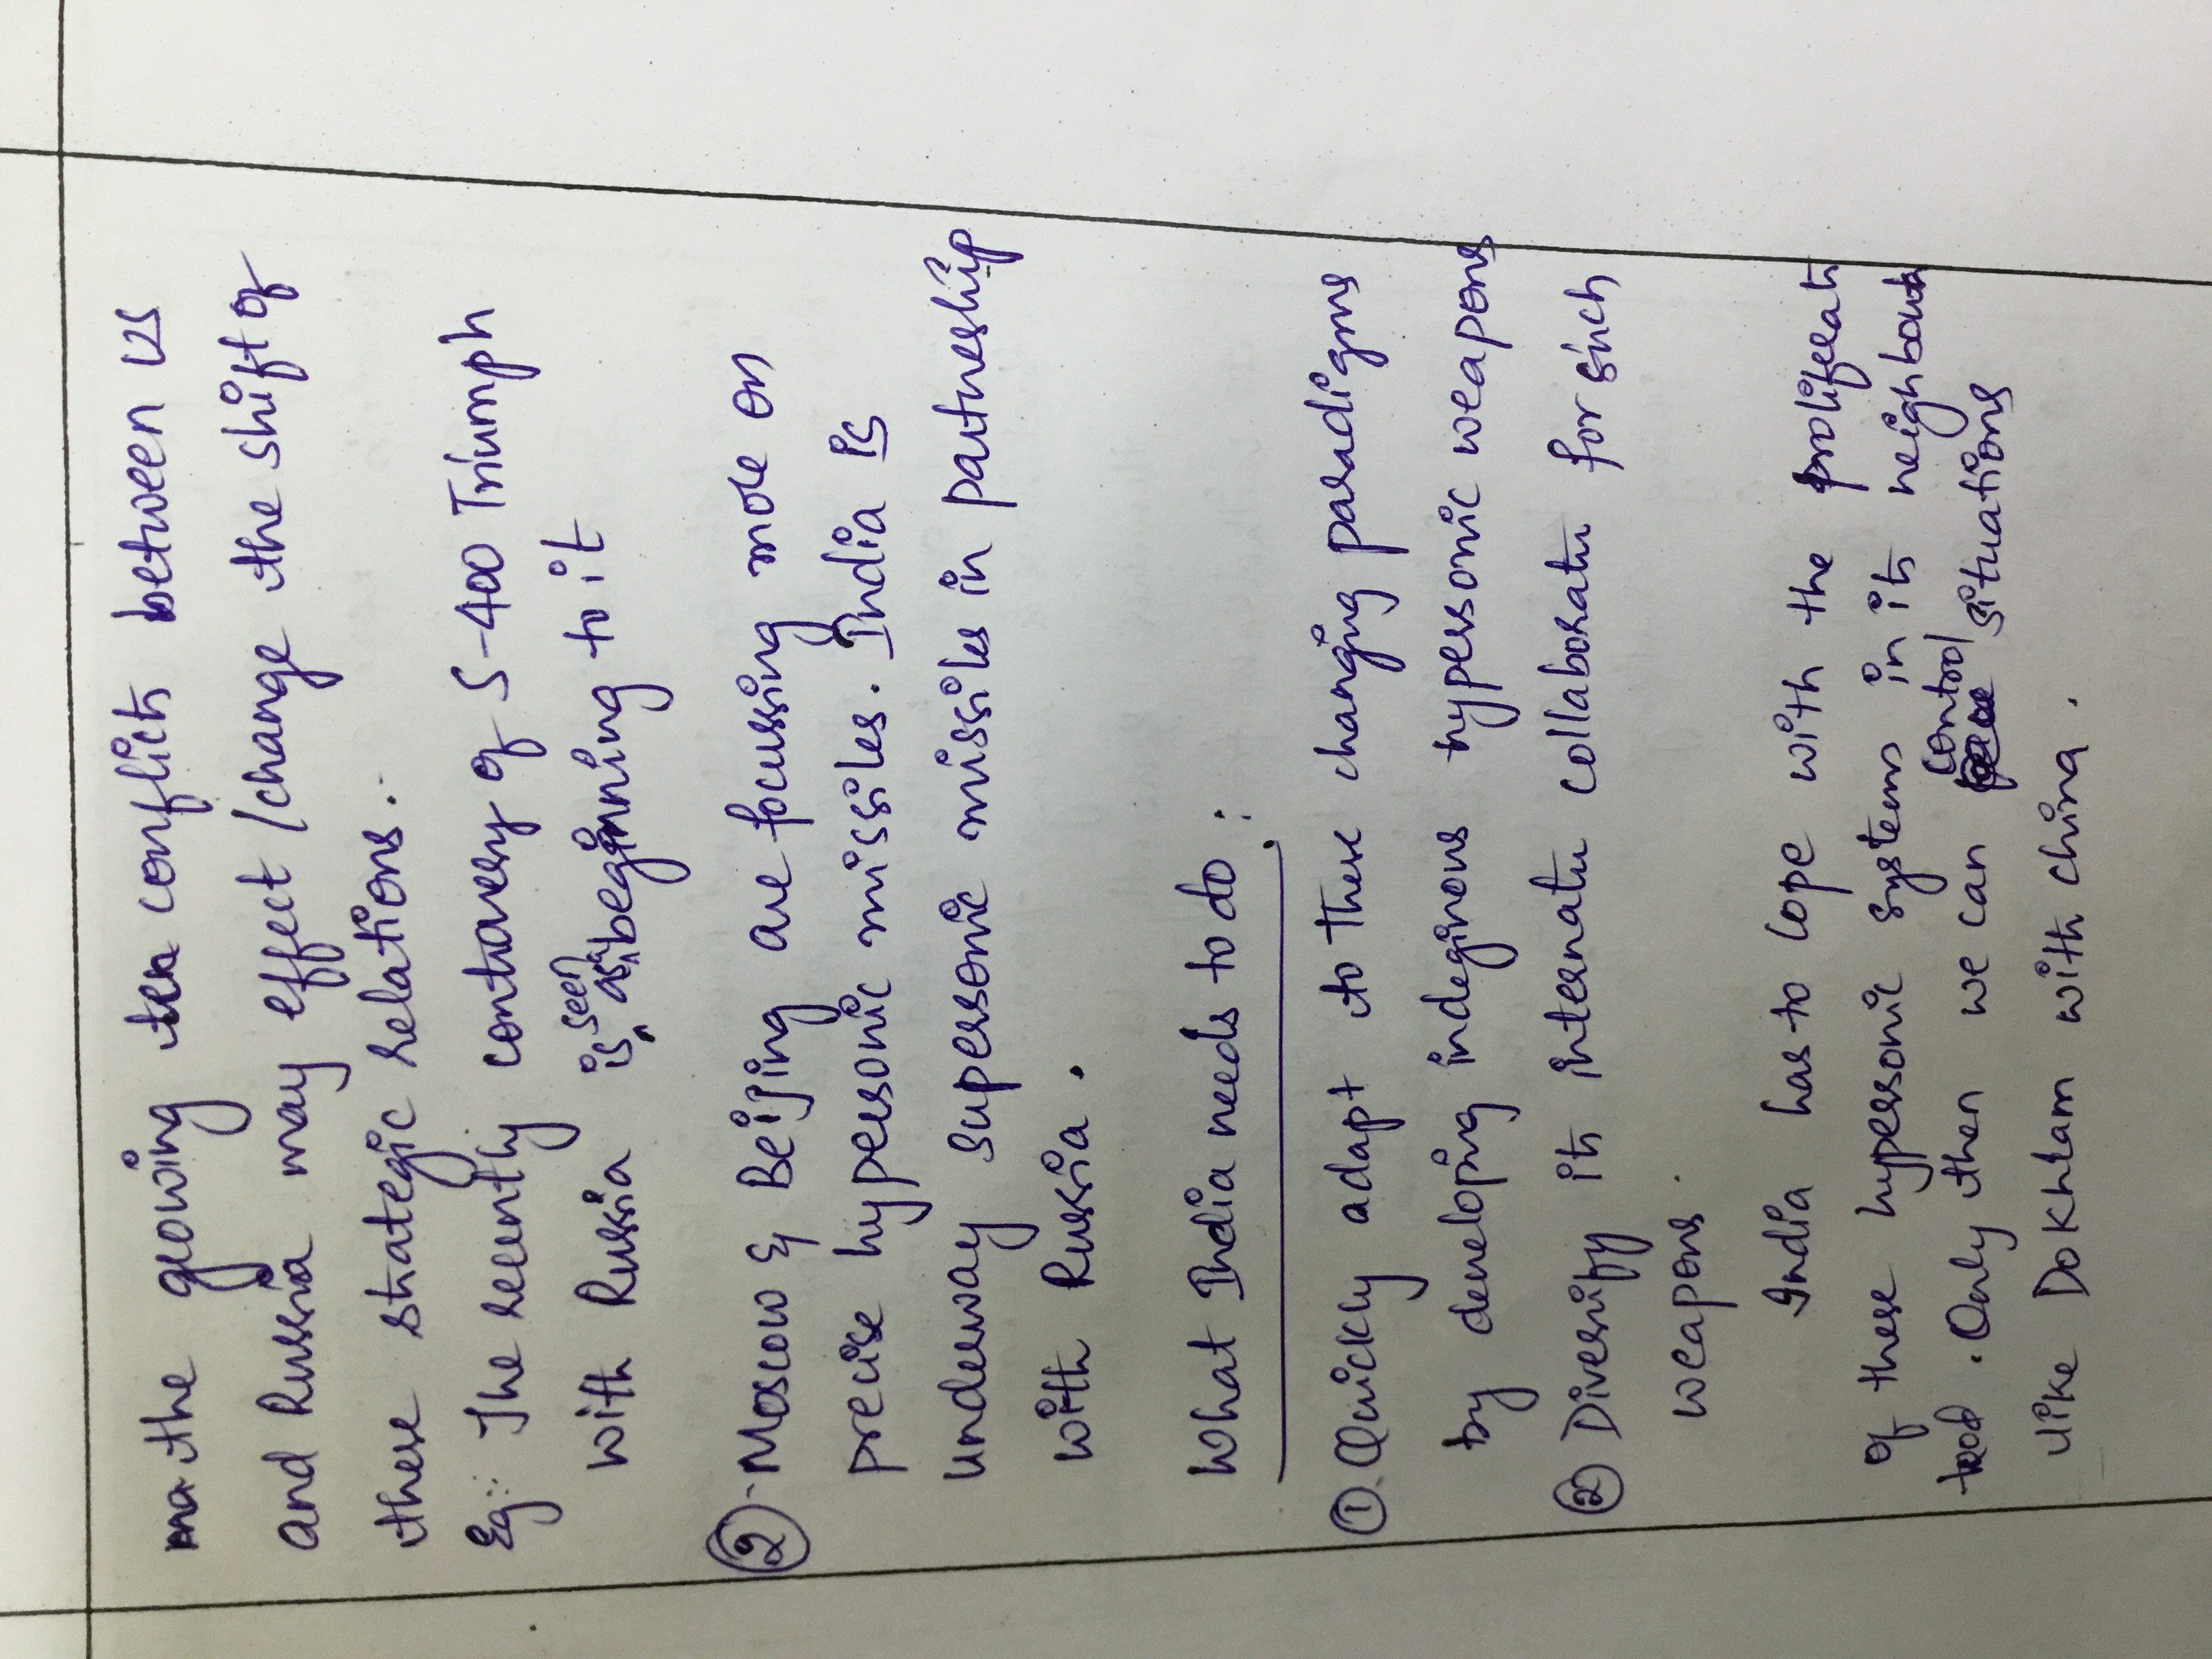 the growing conflicts between US
and Russia may effect/change the shift of
these strategic relations.
Eg:: The recently contravery of S-400 Triumph
with Russia is seen as beginning to it
② - Moscow & Beijing are focussing more on
precise hypersonic missiles. India is
underway supersonic missiles in partneship
with Russia.
What India needs to do :
① Quickly adapt to these changing paradigms
by developing indeginous hypersonic weapons
② Diversify its internatn collaboratn for such
weapons.
India has to cope with the prolifeeatn
of these hypersonic systems in its neighbourh
ood. Only then we can control situations
like Dokhlam with china.